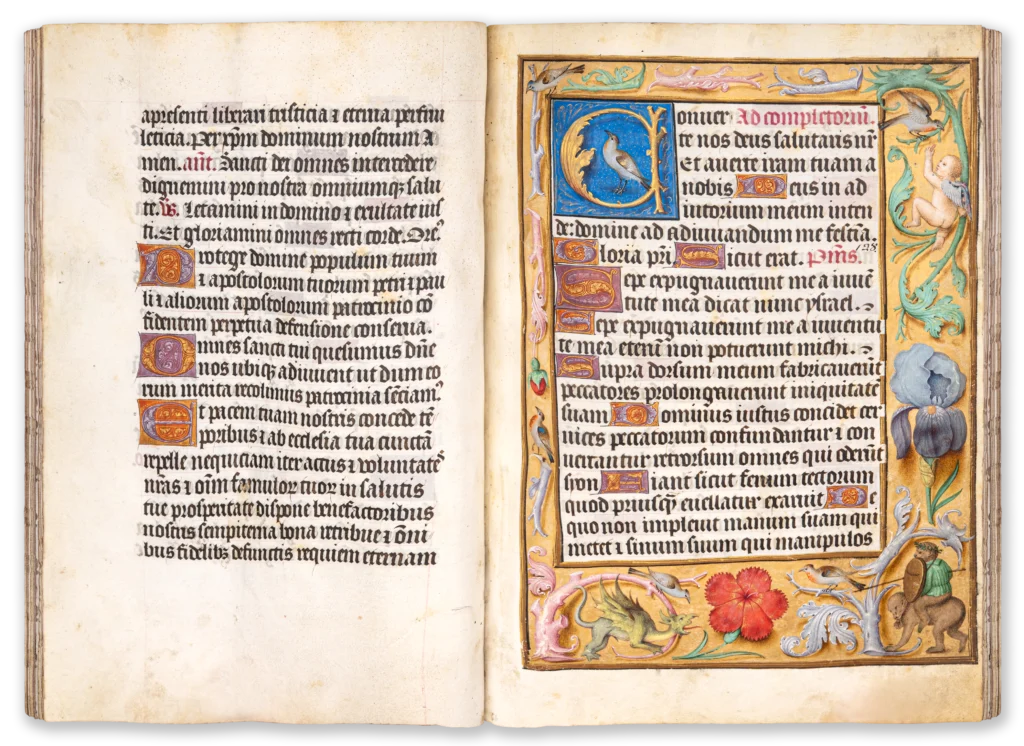 apresenti liberari tristicia ⁊ eterna perfrui
leticia. Per xp̄m dominum nostrum A
men. an̄t. Sancti dei omnes intercedere
dignemini pro nostra omniumqꝫ salu
te. ꝟ. Letamini in domino ⁊ exultate ius
ti. Et gloriamini omnes recti corde. Or̄e᷒
Protege domine populum tuum
⁊ apostolorum tuorum petri ⁊ pau
li ⁊ aliorum apostolorum patrocinio cō
fidentem perpetua defensione conserua.
Omnes sancti tui quesumus dn̄e
nos ubiqꝫ adiuuent ut dum eo
rum merita recolimus patrocinia sēciam᷒
Et pacem tuam nostris concede tē
poribus ⁊ ab ecclesia tua cunctā
repelle nequiciam iter actus ⁊ voluntate᷒
nr̄as ⁊ oīm famuloꝝ tuoꝝ in salutis
tue prosperitate dispone benefactoribus
nostris sempiterna bona retribue ⁊ ōni
bus fidelibꝫ defunctis requiem eternam
Conuer Ad completoriū.
te nos deus salutaris nr̄
Et auerte iram tuam a
nobis Deus in ad
iutorium meum inten
de: domine ad adiuuandum me festīa.
Gloria pr̄i. Sicut erat. Ps̄m᷒. 128
Sepe expugnauerunt me a iuuē
tute meā dicat nunc ysrael.
Sepe expugnauerunt me a iuuentu
te mea etenī non potuerunt michi.
Supra dorsum meum fabricauerūt
peccatores prolongauerunt iniquitatē
suam Dominus iustus concidet cer
uices peccatorum confundantur ⁊ con
uertantur retrorsum omnes qui oderūt
syon Fiant sicut fenum tectorum
quod priusqꝫ euellatur exaruit De
quo non impleuit manum suam qui
metet ⁊ sinum suum qui manipulos